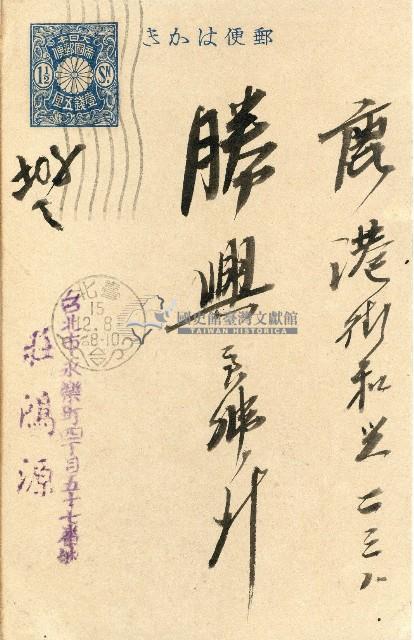 郵便はかき
大日本
帝國郵便
1½ Sn.
壹錢五厘
鹿港街和興二三八
勝興
臺北
15
2.8
台北市永樂町四丁目五十七番地
莊鴻源
國史館臺灣文獻館
TAIWAN HISTORICA